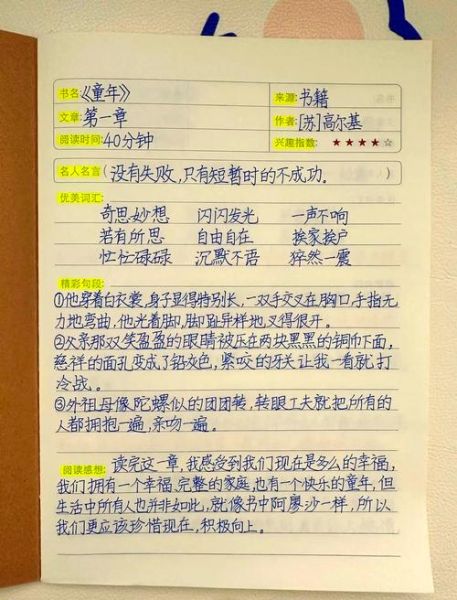 书名:《童年》
来源:书籍
文章:第一章
作者:[苏]高尔基
阅读时间:40分钟
兴趣指数:★★★★☆
名人名言(没有失败,只有短暂时的不成功。)
优美词汇:
奇思妙想 闪闪发光 一声不响
若有所思 自由自在 挨家挨户
忙忙碌碌 沉默不语 猝然一震
精彩句段:
①他穿着白衣裳,身子显得特别长,一双手交叉在胸口,手指无
力地弯曲,他光着脚,脚趾异样地叉得很开。
②父亲那双笑盈盈的眼睛被压在两块黑黑的铜币下面,
慈祥的面孔变成了铅灰色,紧咬的牙关让我一看就打
冷战。
③外祖母像陀螺似的团团转,转眼工夫就把所有的
人都拥抱一遍,亲吻一遍。
阅读感想: 读完这一章,我感受到我们现在是多么的幸福,
我们拥有一个幸福、完整的家庭,也有一个快乐的童年,但
生活中所有人也并非如此,就像书中阿廖沙一样,所以
我们更应该珍惜现在,积极向上。